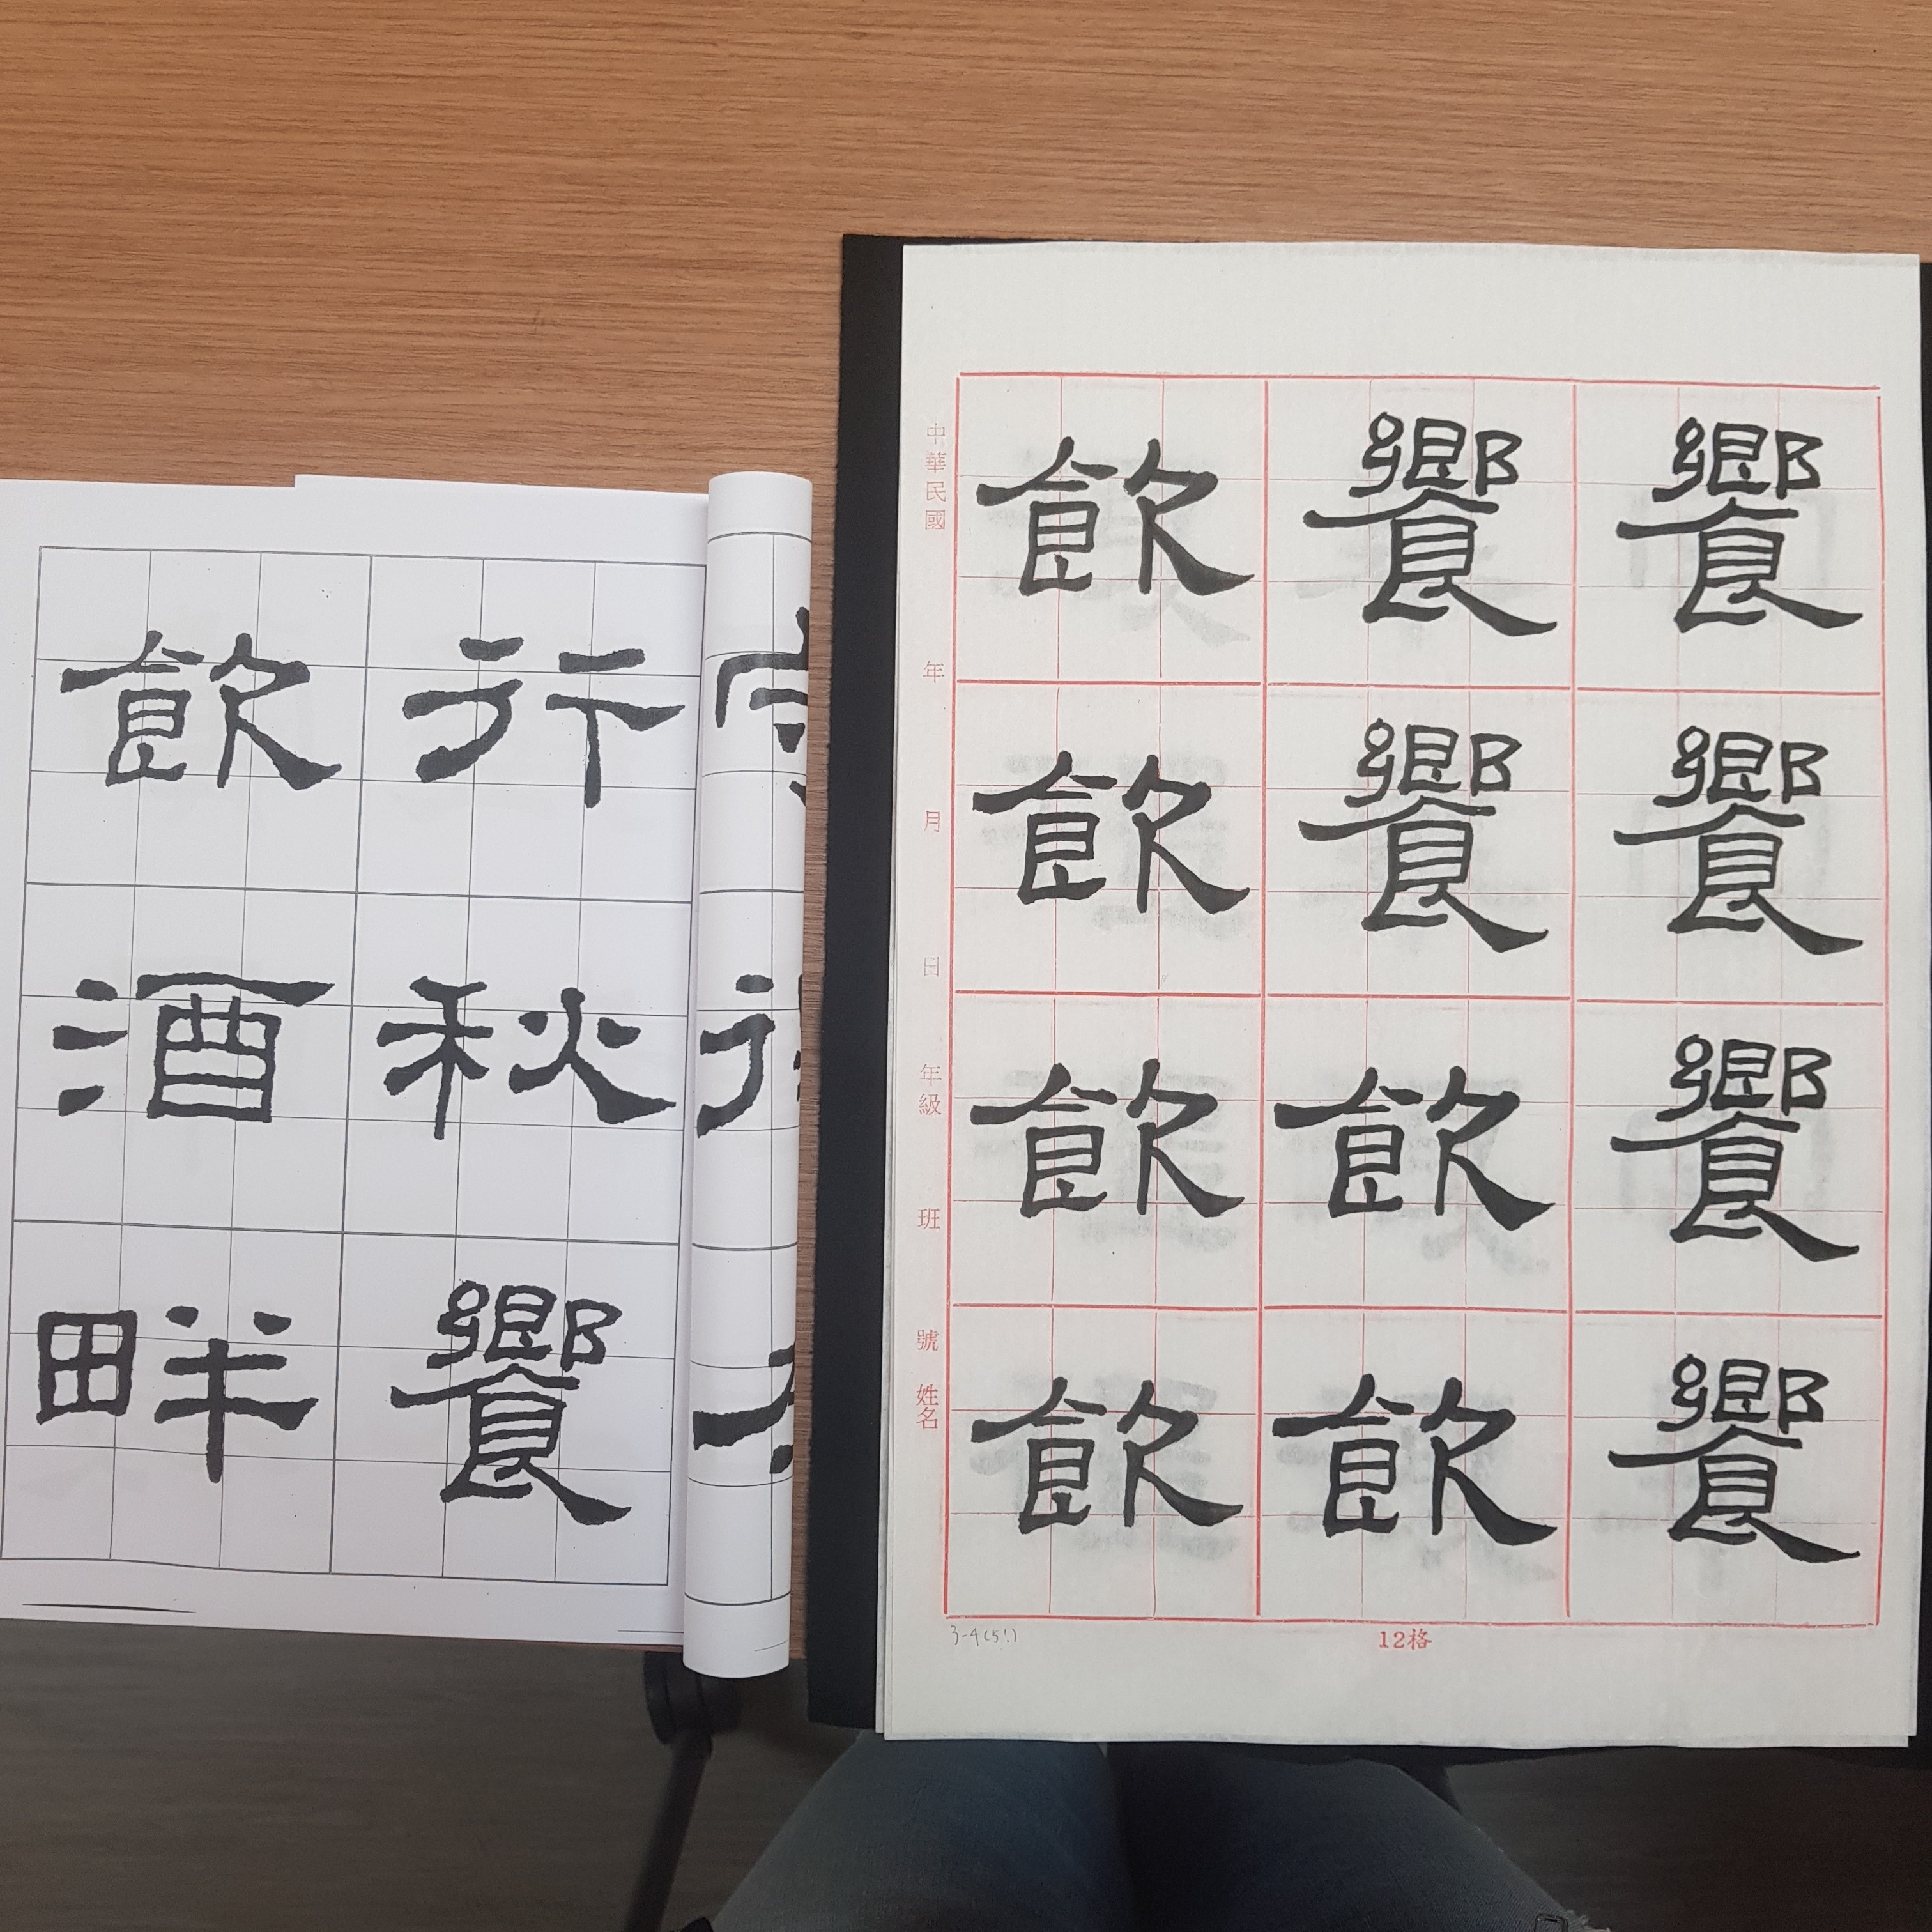 行秋饗
飲酒畔
饗饗饗饗
饗饗飲飲
飲飲飲飲
中華民國 年 月 日 年級 班 號 姓名
12格